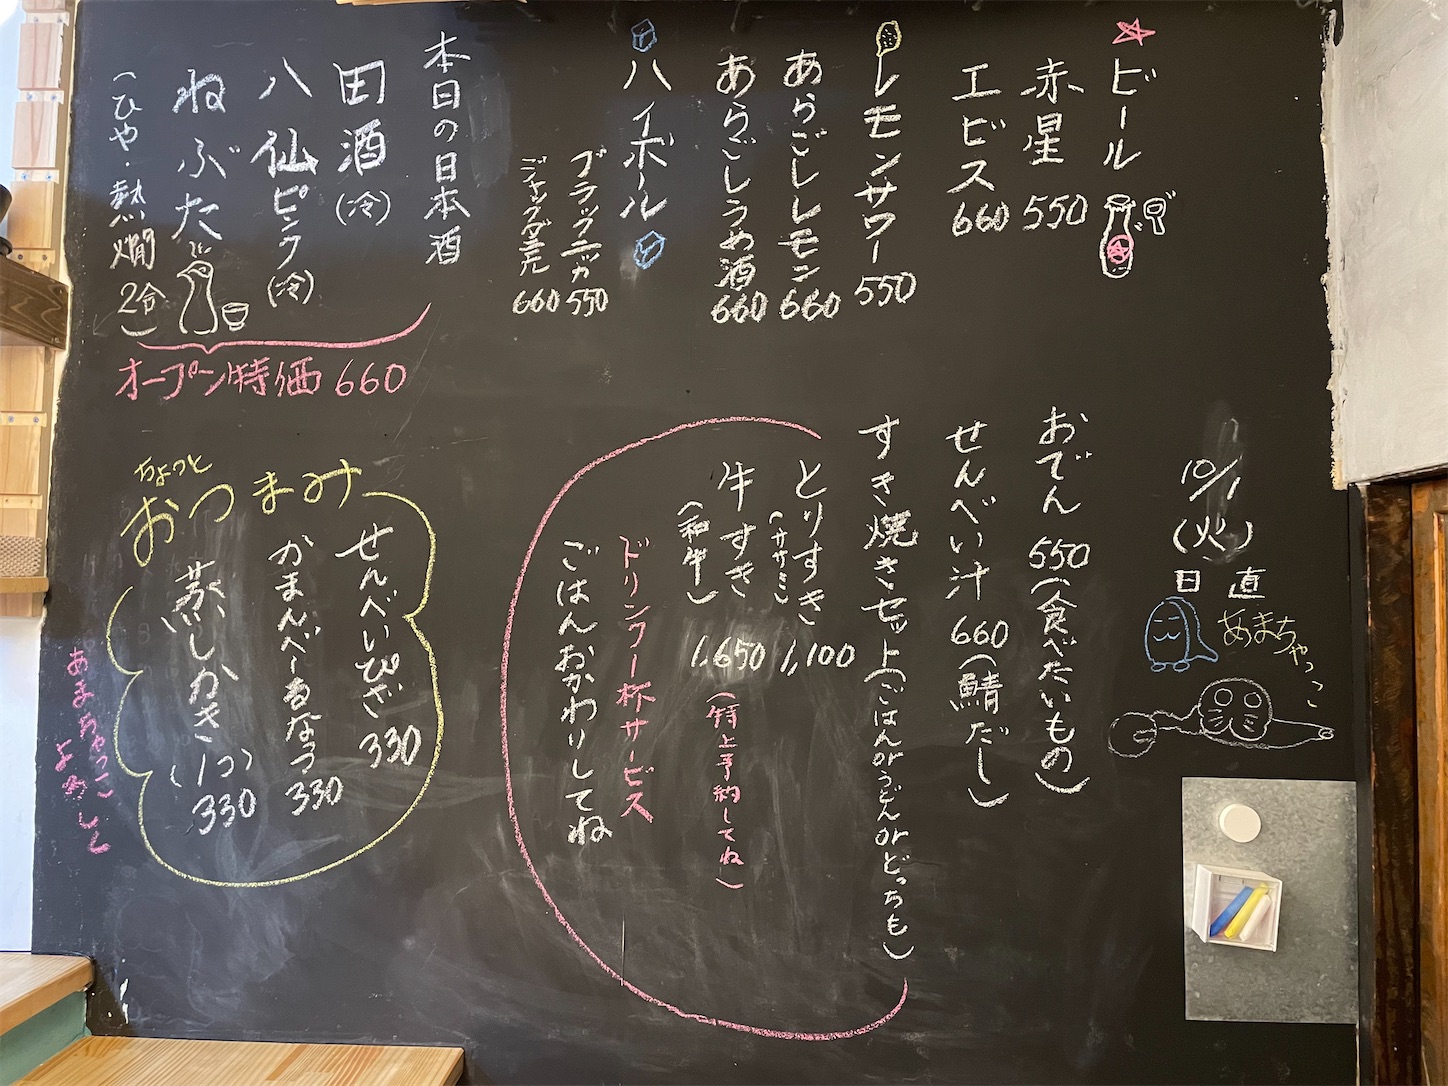 ビール
赤星 550
エビス 660
レモンサワー 550
あらごしレモン 660
あらごしうめ酒 660
ハイボール
ブラックニッカ 550
ジャックダニエル 660
本日の日本酒
田酒(冷)
八仙ピンク(冷)
ねぶた
(ひや・熱燗 2合)
オープン特価 660
10/1
(火)
日直
あまちゃっこ
おでん 550(食べたいもの)
せんべい汁 660(鯖だし)
すき焼きセット(ごはんorうどんorどっちも)
とりすき 1,100
(ササミ)
牛すき 1,650
(和牛)
(特上予約してね)
ドリンク一杯サービス
ごはんおかわりしてね
ちょっと
おつまみ
せんべいぴざ 330
かまんべーるなっつ 330
蒸しかき (1つ) 330
あまちゃっこ
よめしと